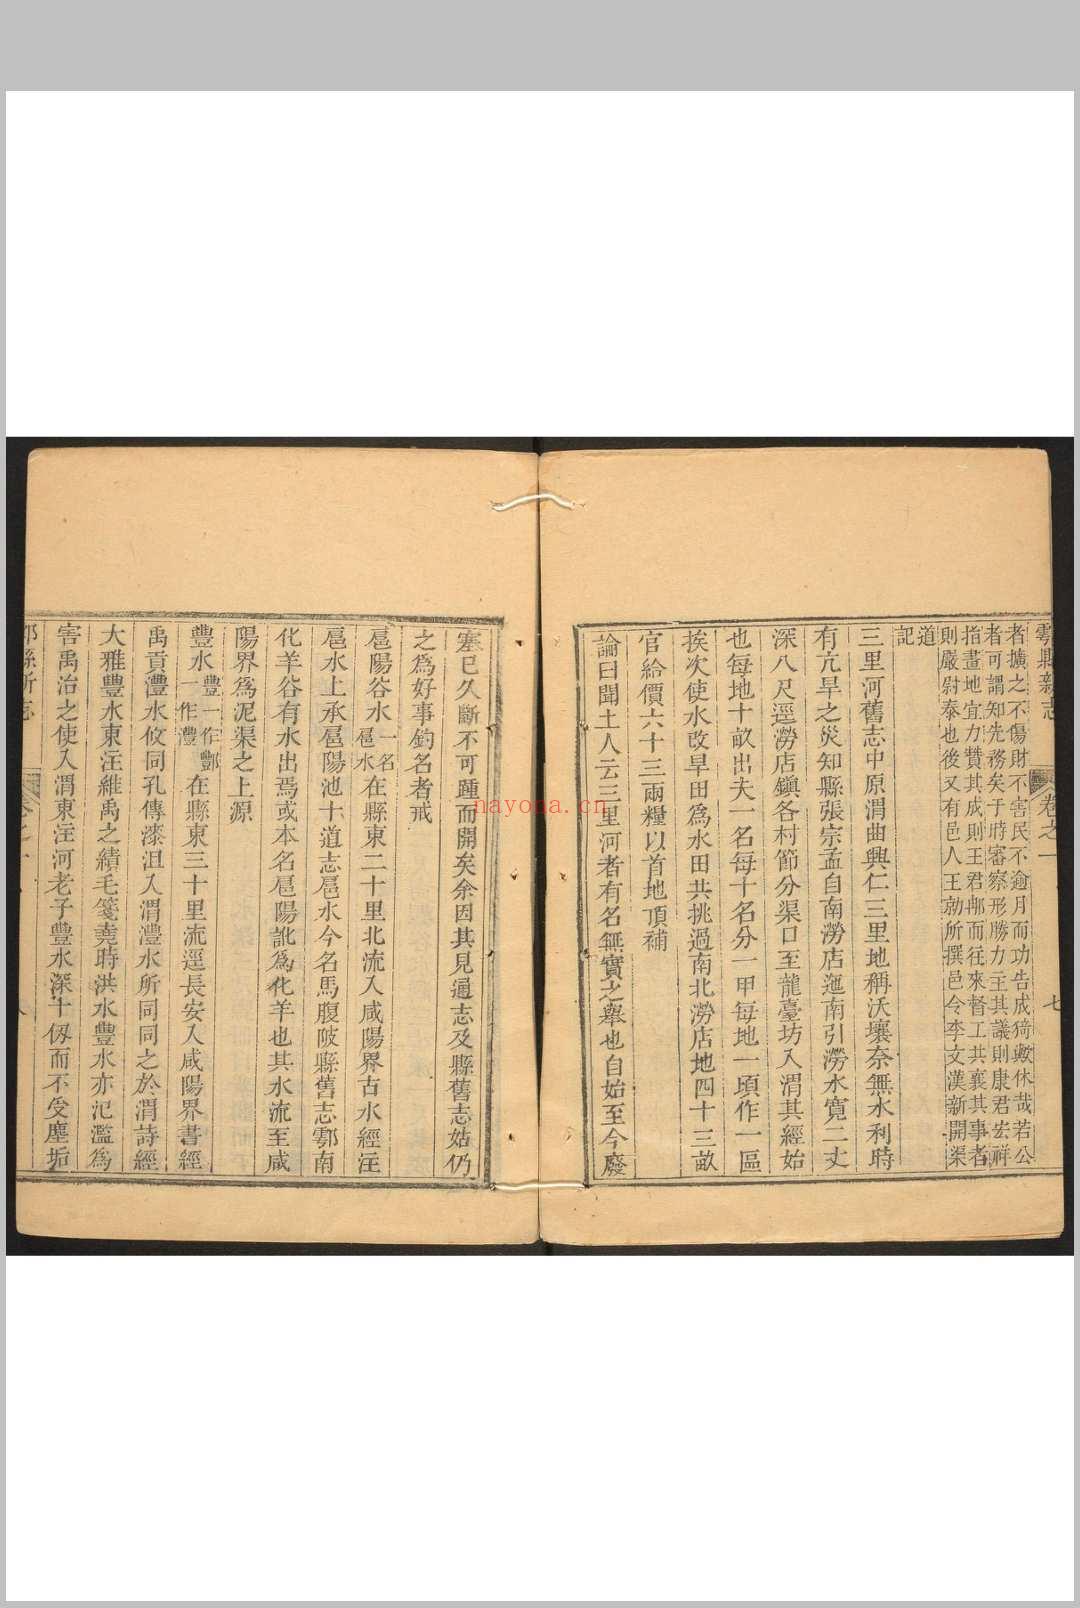 鄠縣新志 卷之一 七
者擴之不傷財不害民不逾月而功告成猗歟休哉若公
者可謂知先務矣于時審察形勝力主其議則康君宏祥
指畫地宜力贊其成則王君邦而往來督工共襄其事者
則嚴尉泰也後又有邑人王勍所撰邑令李文漢新開渠
道
記
三里河舊志中原渭曲興仁三里地稱沃壤奈無水利時
有亢旱之災知縣張宗孟自南澇店迤南引澇水寬二丈
深八尺逕澇店鎮各村節分渠口至龍臺坊入渭其經始
也每地十畝出夫一名每十名分一甲每地一頃作一區
挨次使水改旱田為水田共挑過南北澇店地四十三畝
官給價六十三兩糧以首地頂補
論曰聞土人云三里河者有名無實之舉也自始至今廢
塞已久斷不可踵而開矣余因其見通志及縣舊志姑仍
之為好事釣名者戒
扈陽谷水一名扈水在縣東二十里北流入咸陽界古水經注
扈水上承扈陽池十道志扈水今名馬腹陂縣舊志鄠南
化羊谷有水出焉或本名扈陽訛為化羊也其水流至咸
陽界為泥渠之上源
豐水豐一作酆一作灃在縣東三十里流逕長安入咸陽界書經
禹貢灃水攸同孔傳漆沮入渭灃水所同同之於渭詩經
大雅豐水東注維禹之績毛箋堯時洪水豐水亦氾濫為
害禹治之使入渭東注河老子豐水深十仞而不受塵垢
nayona.cn